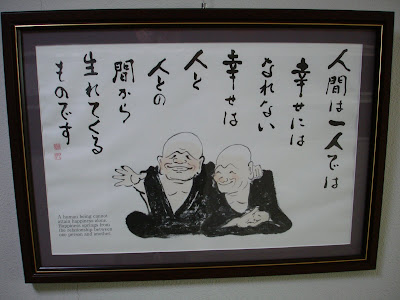 人間は一人では
幸せには
なれない
幸せは
人と
人との
間から
生れてくる
ものです
A human being cannot
attain happiness alone.
Happiness springs from
the relationship between
one person and another.